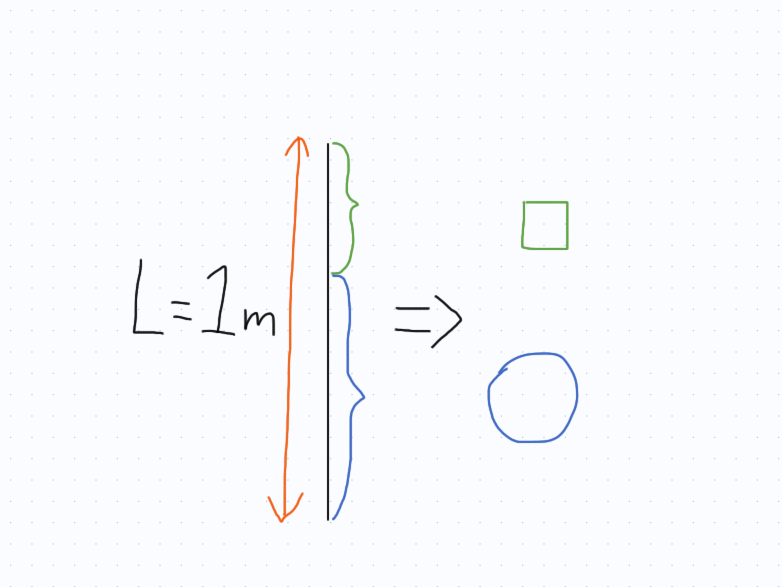 L = 1m ⇒